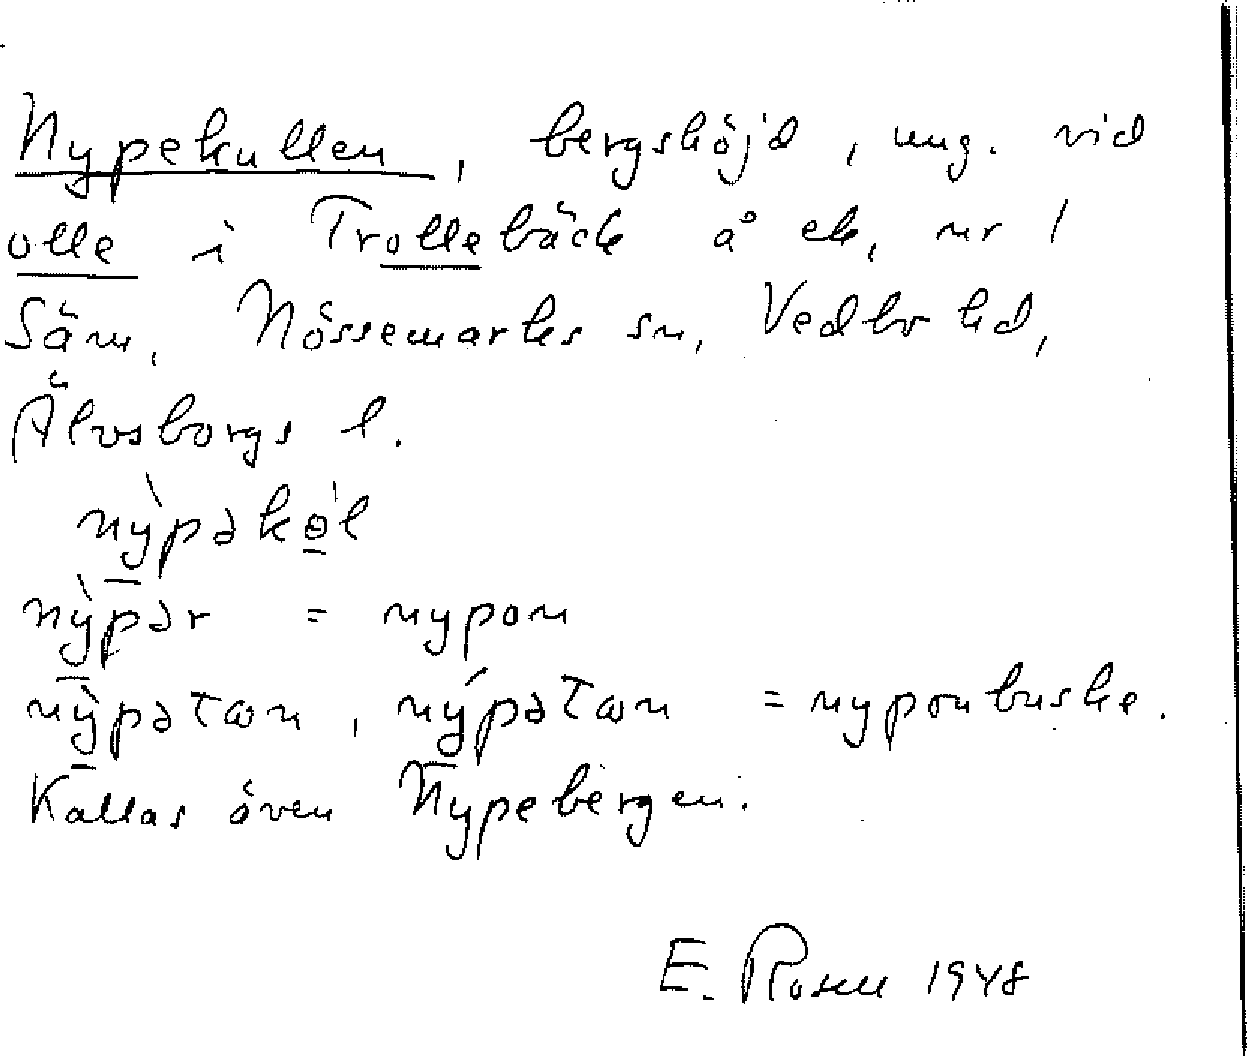 Nypekullen, bergshöjd, ung. vid
olle i Trollebäck å ek, nr 1
Säm, Nössemarks sn, Vedbo hd,
Älvsborgs l.
nỳ̱pəkɵ̱l
nỳ̱pər = nypon
nỳ̱pətɷn, ný̱pətɷn = nyponbuske.
Kallas även Nypebergen.
E. Rosen 1948